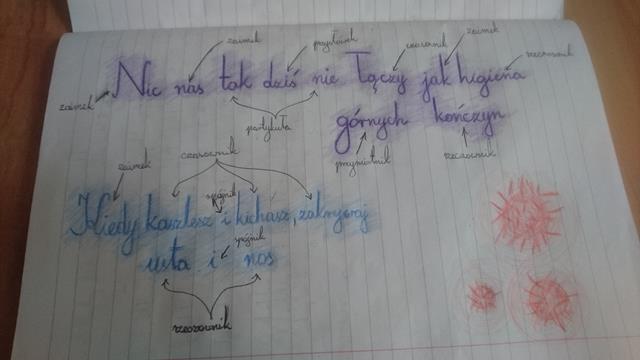 zaimek przysłówek czasownik zaimek rzeczownik
Nic nas tak dziś nie łączy jak higiena
zaimek partykuła górnych kończyn
przymiotnik rzeczownik
zaimek czasownik
spójnik
Kiedy kaszlesz i kichasz, zakrywaj
spójnik
usta i nos
rzeczownik